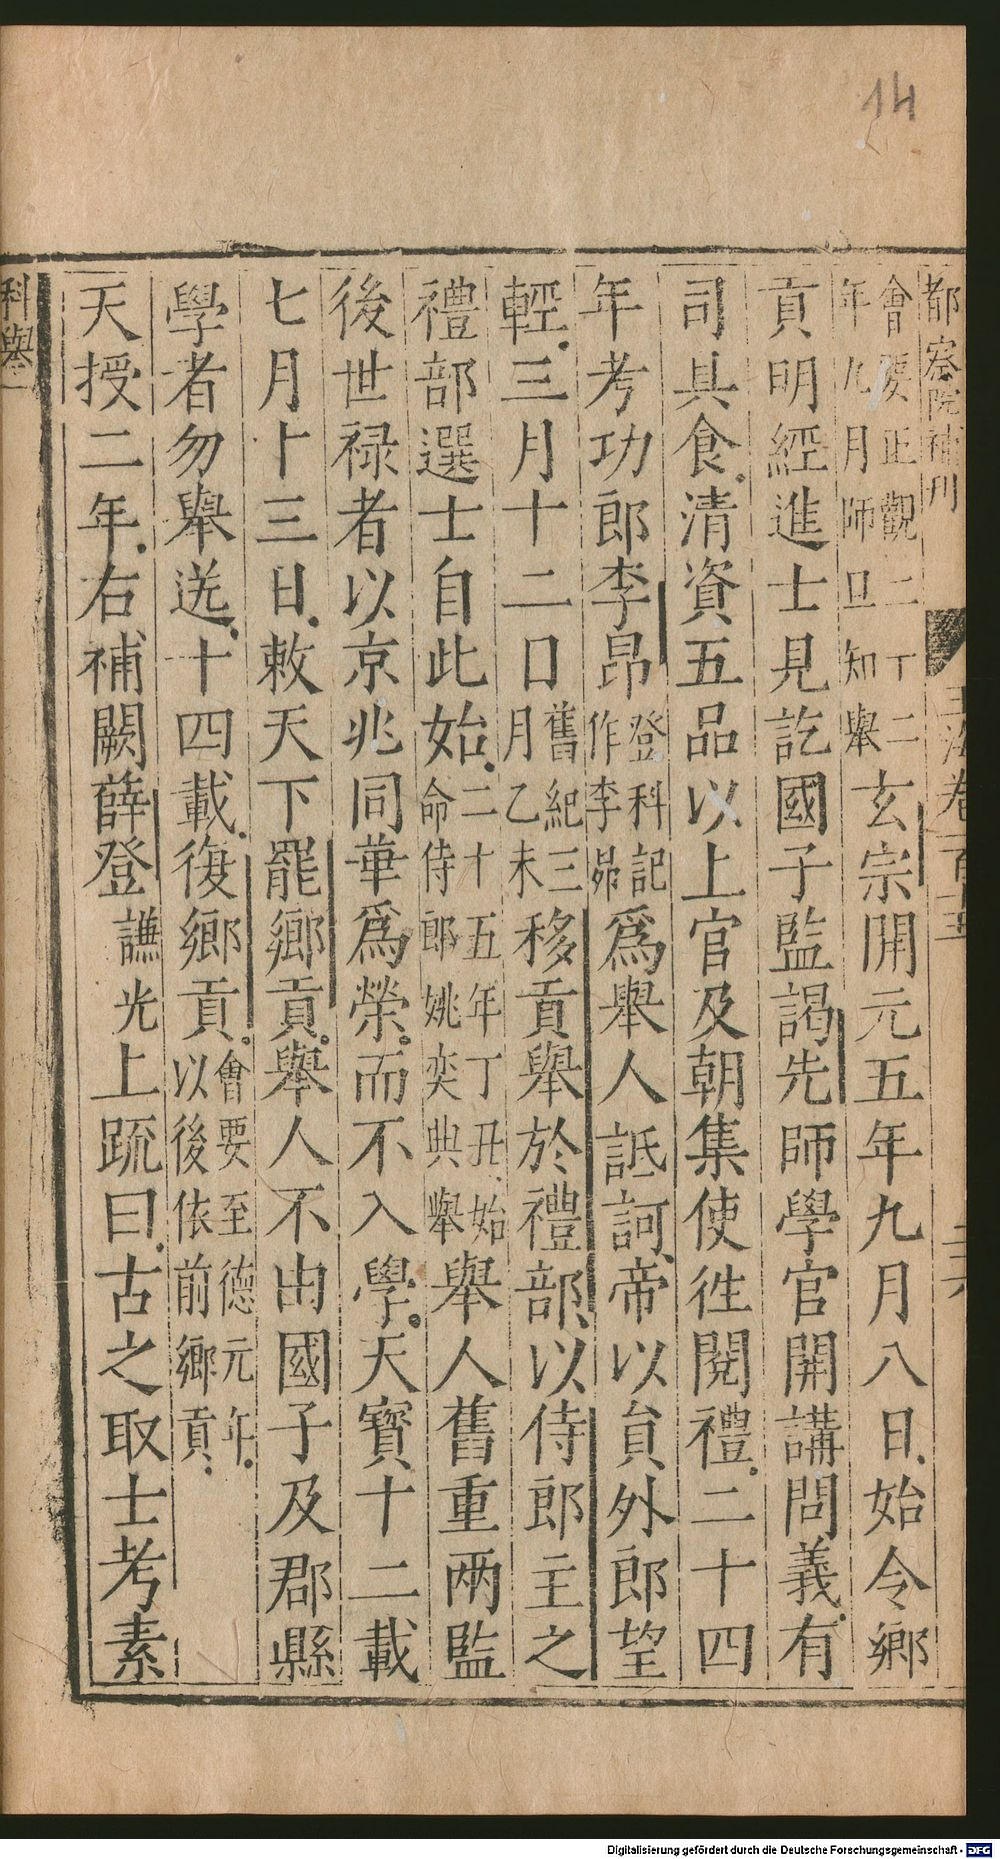 14
都察院補刊 玉海卷一百十五
會要正觀二丁二年九月師旦知舉玄宗開元五年九月八日始令鄉
貢明經進士見訖國子監謁先師學官開講問義有
司具食清資五品以上官及朝集使徃閱禮二十四
年考功郎李昂登科記作李昴爲舉人詆訶帝以貟外郎望
輕三月十二口舊紀三月乙未移貢舉於禮部以侍郎主之
禮部選士自此始二十五年丁丑始命侍郎姚奕典舉舉人舊重兩監
後世禄者以京兆同華爲榮而不入學天寶十二載
七月十三日敕天下罷鄉貢舉人不由國子及郡縣
學者勿舉送十四載復鄉貢會要至德元年以後依前鄉貢
天授二年右補闕薛登謙光上疏曰古之取士考素
科舉二
Digitalisierung gefördert durch die Deutsche Forschungsgemeinschaft - DFG